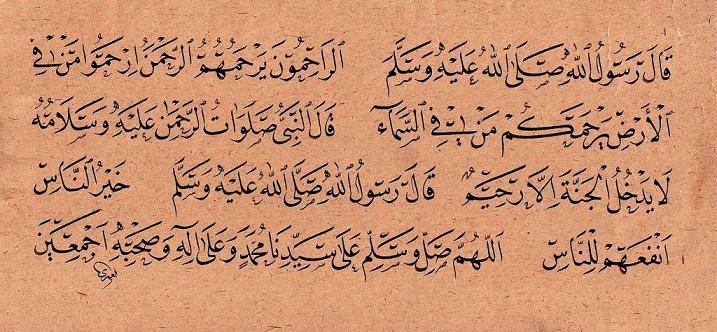 قَالَ رَسُولُ اللهِ صَلَّى اللهُ عَلَيْهِ وَسَلَّمَ الرَّاحِمُونَ يَرْحَمُهُمُ الرَّحْمٰنُ اِرْحَمُوا مَنْ فِي
الْأَرْضِ يَرْحَمْكُمْ مَنْ فِي السَّمَآءِ قَالَ النَّبِيُّ صَلَوَاتُ الرَّحْمٰنِ عَلَيْهِ وَسَلَامُهُ
لَا يَدْخُلُ الْجَنَّةَ اِلَّا رَحِيمٌ قَالَ رَسُولُ اللهِ صَلَّى اللهُ عَلَيْهِ وَسَلَّمَ خَيْرُ النَّاسِ
اَنْفَعُهُمْ لِلنَّاسِ اَللّٰهُمَّ صَلِّ وَسَلِّمْ عَلَى سَيِّدِنَا مُحَمَّدٍ وَعَلَى اٰلِهِ وَصَحْبِهِ اَجْمَعِينَ